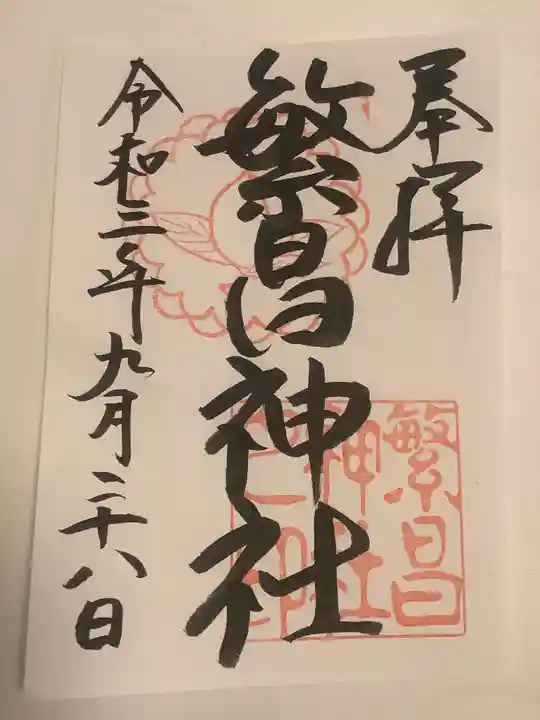 奉拝
繁昌神社
令和二年九月二十八日
繁昌
神社